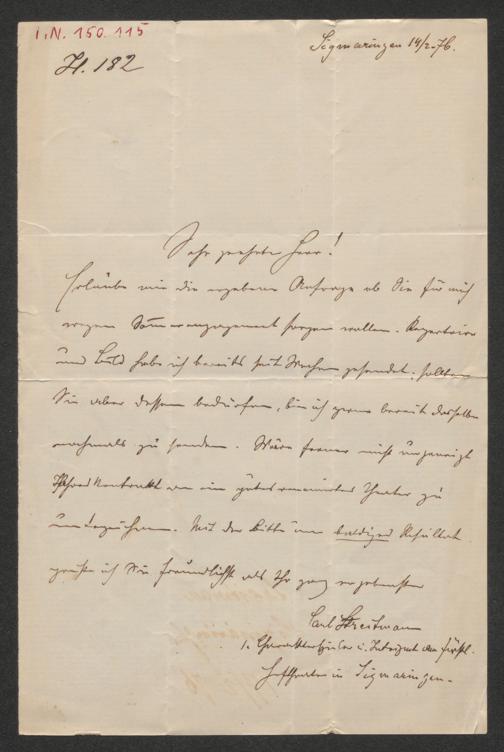 I.N. 150.115
H. 182
Sigmaringen 14/2.76.
Sehr geehrter Herr!
Erlaube mir die ergebene Anfrage ob Sie für mich
wegen Sommerengagement sorgen wollen. Repertoire
und Bild habe ich bereits seit Wochen gesendet. sollten
Sie aber dessen bedürfen, bin ich gerne bereit dasselbe
nochmals zu senden. Wäre ferner nicht ungeneigt
Jahres Kontrakt an ein gutes renomirtes Theater zu
unterzeichnen. Mit der Bitte um baldiges Resultat
grüße ich Sie freundlichst als Ihr ganz ergebenster
Carl Streitmann
1. Charakterspieler u. Intrigant am fürstl.
Hoftheater in Sigmaringen.